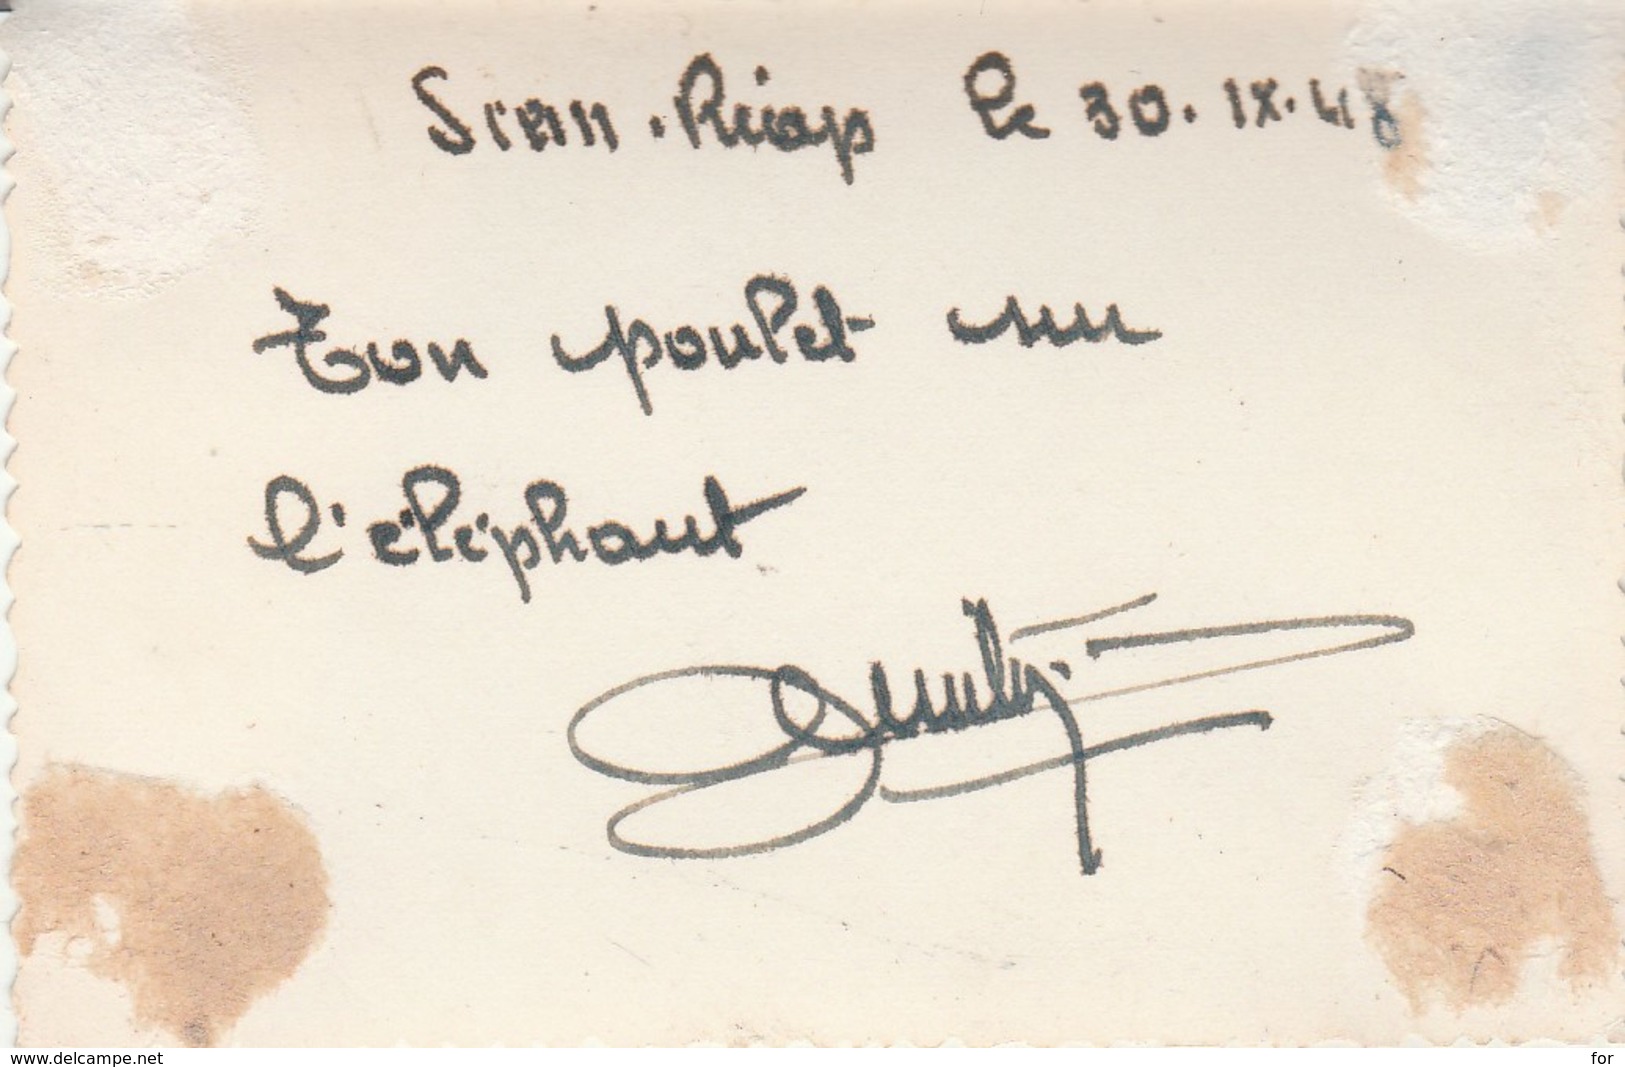 Siem-Réap le 30.IX.48
Ton poulet sur
l'éléphant
www.delcampe.net
for